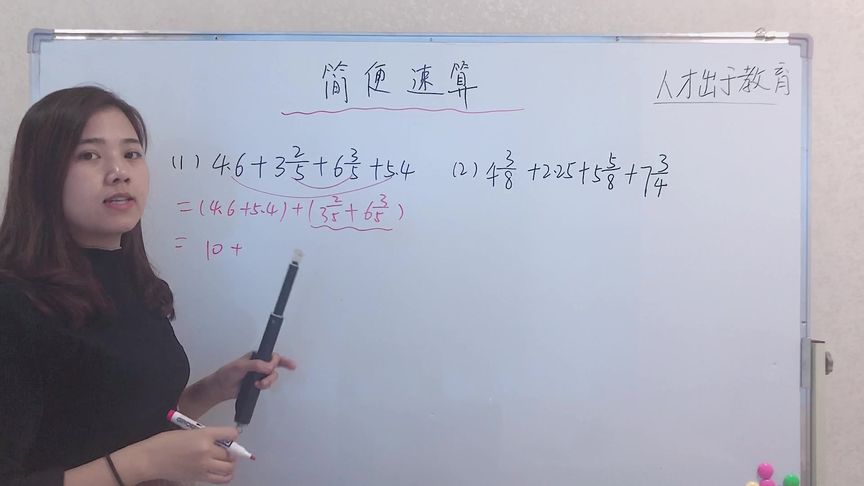 简便速算
人才出于教育
(1) 4.6+3 2/5+6 3/5+5.4
=(4.6+5.4)+(3 2/5+6 3/5)
= 10+
(2) 4 3/8+2.25+5 5/8+7 3/4